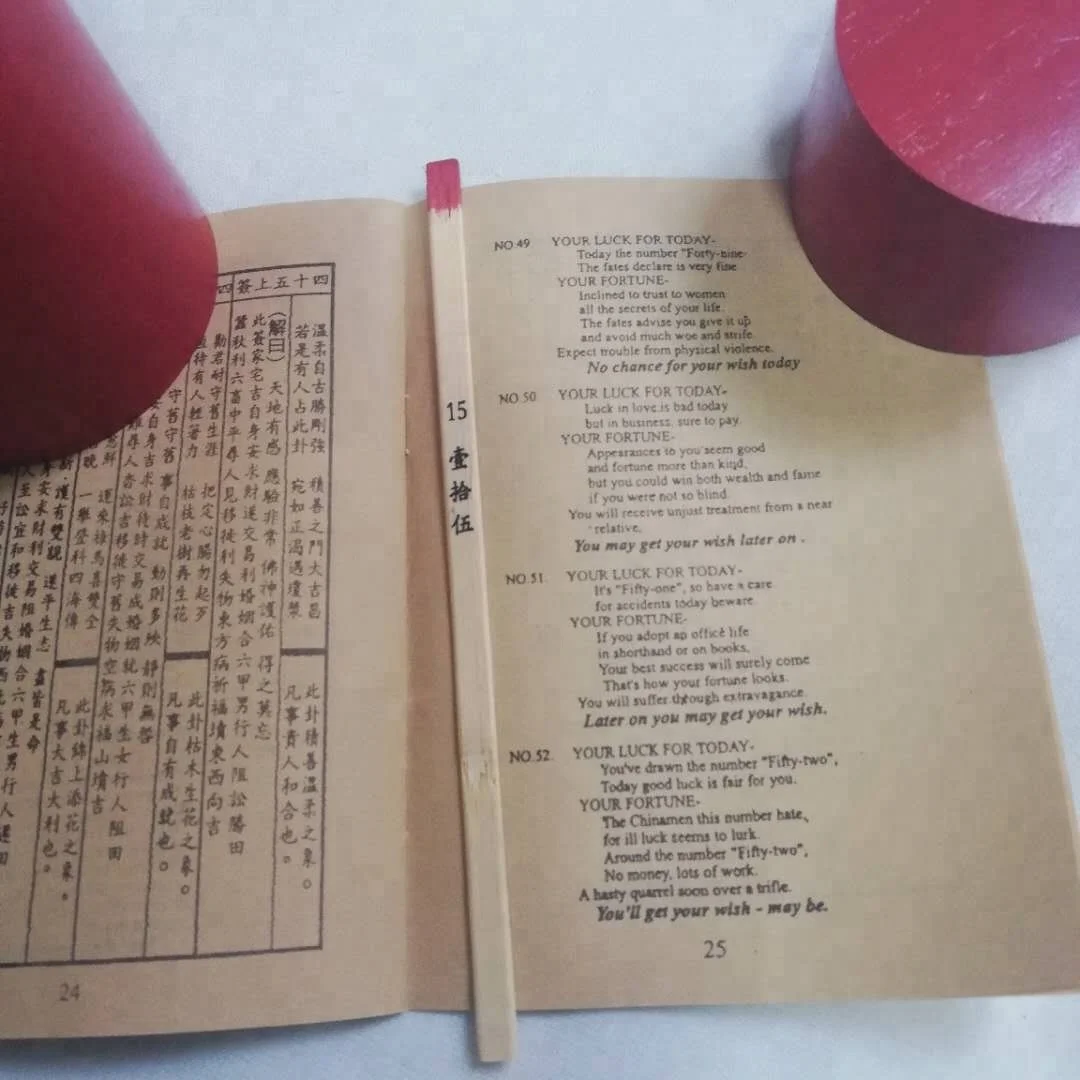 四十五上簽
四
溫柔自古勝剛強 積善之門大吉昌
若是有人占此卦 宛如正渴遇瓊漿
此卦積善溫柔之象。
凡事貴人和合也。
(解曰) 天地有感 應驗非常 佛神護佑 得之莫忘
此簽家宅吉自身安求財遂交易利婚姻合六甲男行人阻訟勝田
蠶秋利六畜中平尋人見移徙利失物東方病祈福墳東西向吉
勸君耐守舊生涯 把定心腸勿起歹
待有人輕著力 枯枝老樹再生花
此卦枯木生花之象。
凡事自有成就也。
守舊守舊 事自成就 動則多殃 靜則無咎
安自身吉求財待時交易成婚姻就六甲生女行人阻田
尋人杳訟吉移徙守舊失物空病求福山墳吉
運來祿馬喜雙全
晚 一舉登科四海傳
此卦錦上添花之象。
凡事大吉大利也。
護有雙親 遂平生志 盡皆是命
安求財利交易阻婚姻合六甲生男行人
至訟宜和移徙吉失物西
24
15 壹拾伍
NO.49 YOUR LUCK FOR TODAY-
Today the number "Forty-nine-
The fates declare is very fine
YOUR FORTUNE-
Inclined to trust to women
all the secrets of your life.
The fates advise you give it up
and avoid much woe and strife.
Expect trouble from physical violence.
No chance for your wish today
NO.50 YOUR LUCK FOR TODAY-
Luck in love is bad today
but in business, sure to pay.
YOUR FORTUNE-
Appearances to you seem good
and fortune more than kind,
but you could win both wealth and fame
if you were not so blind.
You will receive unjust treatment from a near
relative.
You may get your wish later on .
NO.51. YOUR LUCK FOR TODAY-
It's "Fifty-one", so have a care
for accidents today beware.
YOUR FORTUNE-
If you adopt an office life
in shorthand or on books,
Your best success will surely come
That's how your fortune looks.
You will suffer through extravagance.
Later on you may get your wish.
NO.52. YOUR LUCK FOR TODAY-
You've drawn the number "Fifty-two",
Today good luck is fair for you.
YOUR FORTUNE-
The Chinamen this number hate,
for ill luck seems to lurk.
Around the number "Fifty-two",
No money, lots of work.
A hasty quarrel soon over a trifle.
You'll get your wish - may be.
25